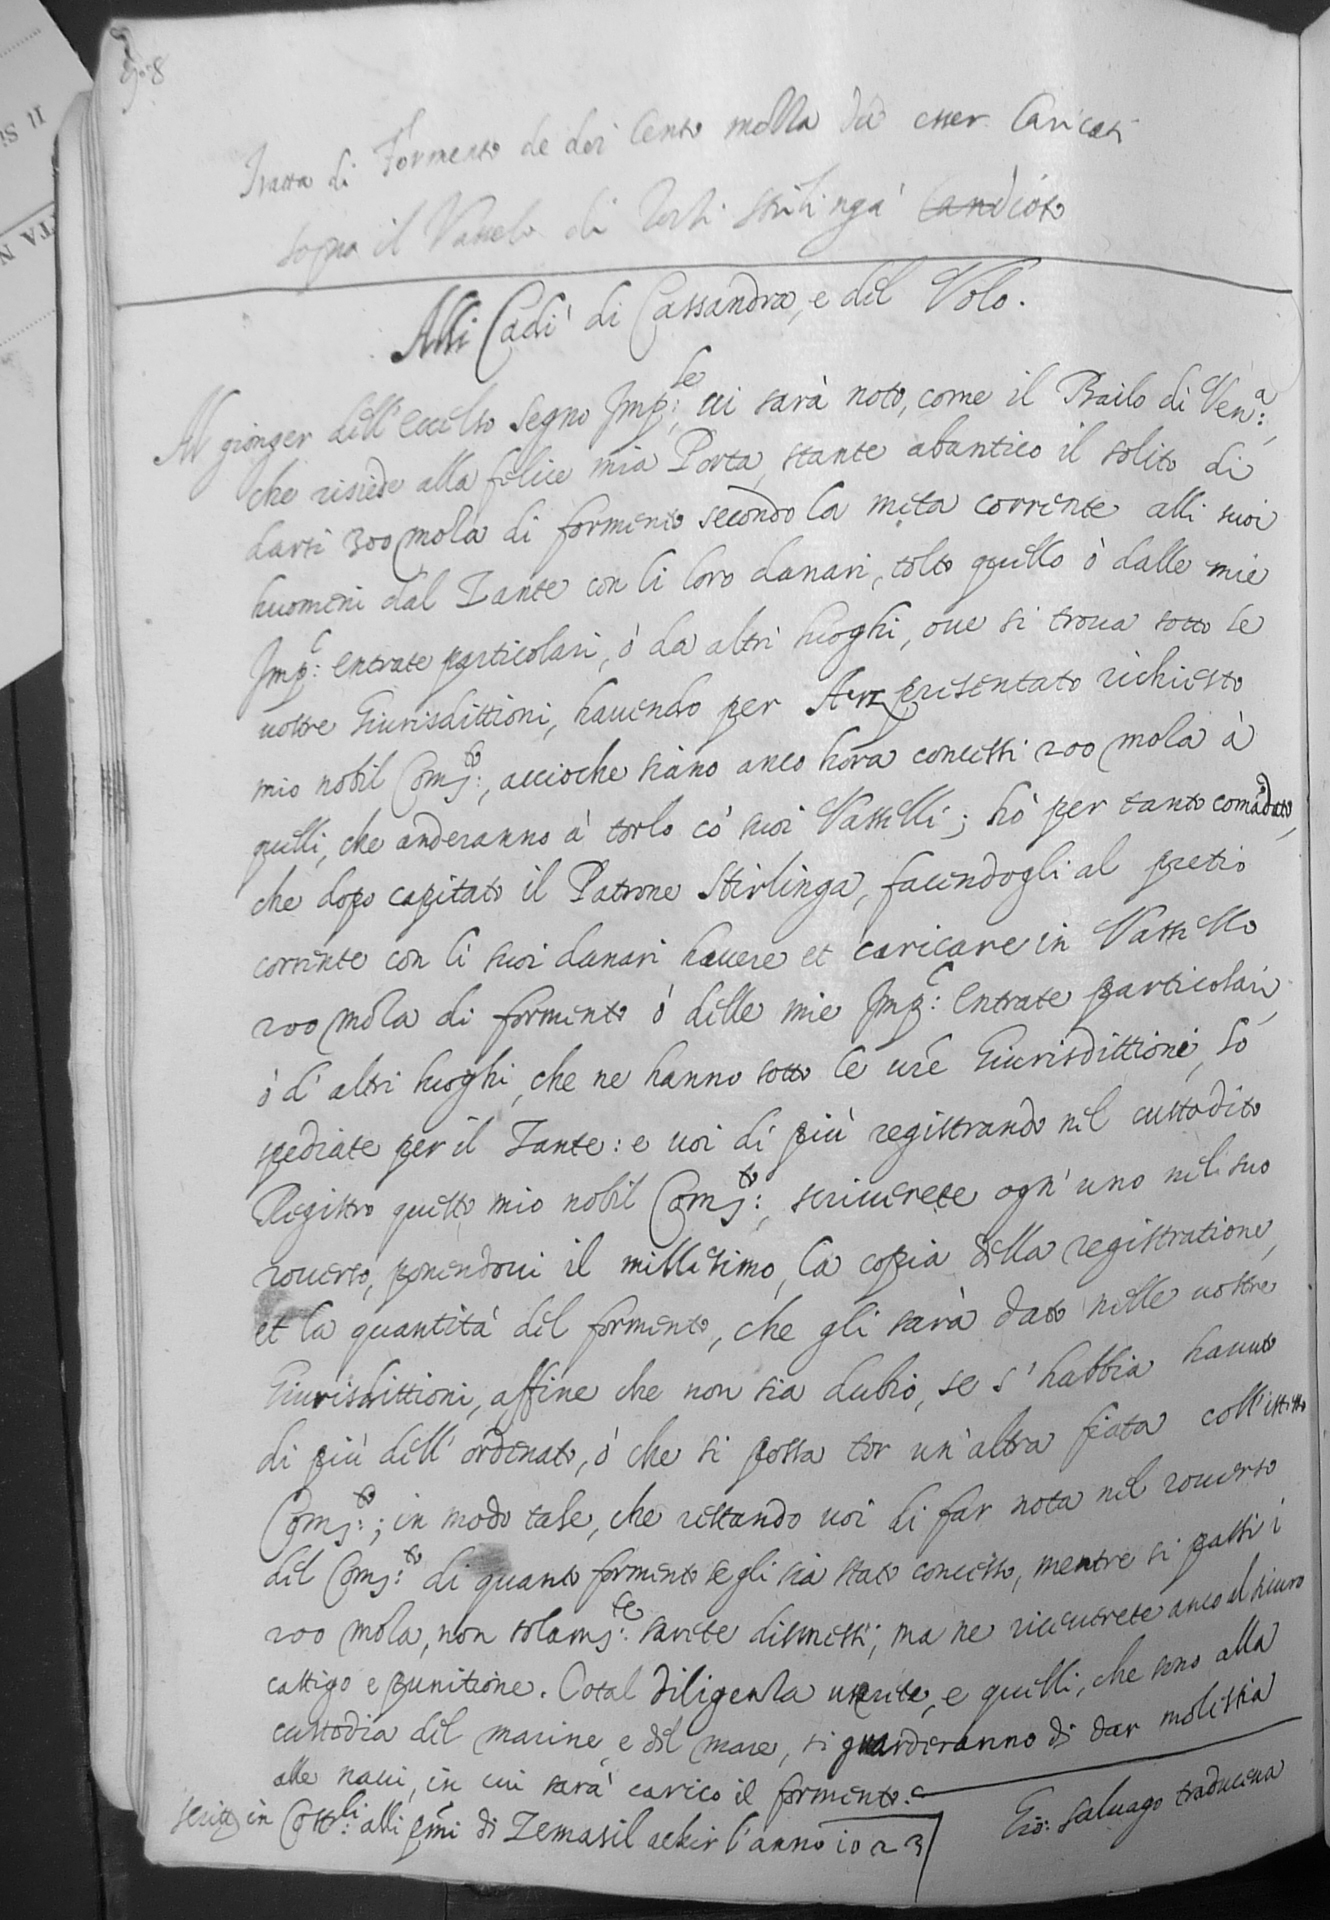 Tratta di Formento de doi Cento molla da esser Caricati
sopra il Vassello di Stirlinga Candioto
Alli Cadi' di Cassandra, e del Volo.
Al gionger dell'eccelso segno Imp:le, ui sarà noto, come il Bailo di Ven:a,
che risiede alla felice mia Porta, stante abantico il solito di
darsi 300 mola di formento secondo la meta corrente alli suoi
huomeni dal Zante con li loro danari, tolto quello ò dalle mie
Imp:e entrate particolari, ò da altri luoghi, oue si troua sotto le
uostre Giurisdittioni, hauendo per Arz presentato richiesto
mio nobil Coms:to, accioche siano anco hora concessi 200 mola à
quelli, che anderanno à torlo co' suoi Vasselli; hò per tanto comãdato,
che dopo capitato il Patrone Stirlinga, facendogli al pretio
corrente con li suoi danari hauere et caricare in Vassello
200 mola di formento ò delle mie Imp:e Entrate particolari,
ò d'altri luoghi, che ne hanno sotto le ure Giurisdittioni, lo
spediate per il Zante: e uoi di più registrando nel custodito
Registro questo mio nobil Coms:to, scriuerete ogn'uno nel suo
rouerso, ponendoui il millesimo, la copia della registratione,
et la quantità del formento, che gli sarà dato nelle uostre
Giurisdittioni, affine che non sia dubio, se s'habbia hauuto
di più dell'ordenato, ò che si possa tor un'altra fiata coll'istesso
Coms:to; in modo tale, che restando uoi di far nota nel rouerso
del Coms:to di quanto formento se gli sia stato concesso, mentre si passi i
200 mola, non solams:te sarete dismessi; ma ne riceuerete anco al sicuro
castigo e punitione. Cotal diligenza userete, e quelli, che sono alla
custodia del marine, e del mare, si guarderanno di dar molestia
alle naui, in cui sarà carico il formento.
Scritto in Cost:li alli pmi di Zemasil aekir l'anno 1023
Gio: Saluago traduceua